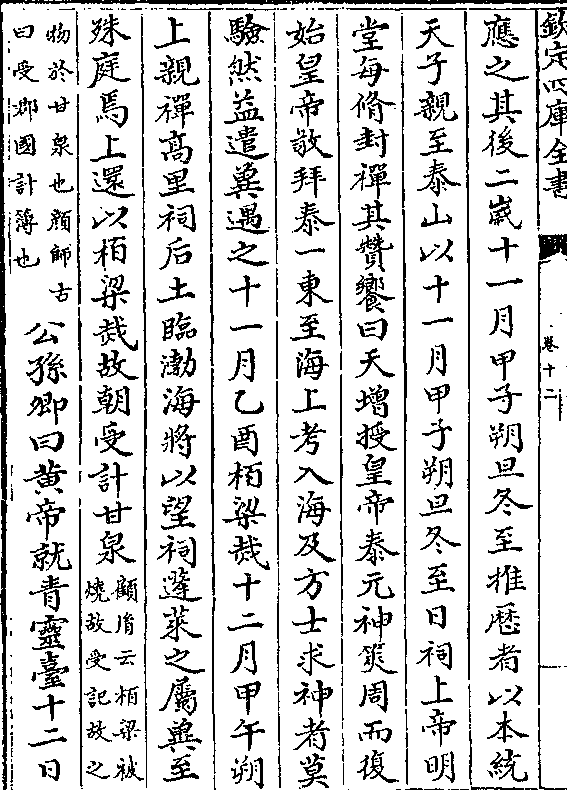 欽定四庫全書
卷十二
應之其後二嵗十一月甲子朔旦冬至推厯者以本統
天子親至泰山以十一月甲子朔旦冬至日祠上帝明
堂每脩封禪其贊饗曰天增授皇帝泰元神筴周而復
始皇帝敬拜泰一東至海上考入海及方士求神者莫
驗然益遣冀遇之十一月乙酉栢梁烖十二月甲午朔
上親禪髙里祠后土臨渤海將以望祠蓬萊之屬兾至
殊庭焉上還以栢梁烖故朝受計甘泉
顧㣧云栢梁被
燒故受記故之
物於甘泉也顔師古
曰受郡國計簿也
公孫卿曰黄帝就青靈臺十二日